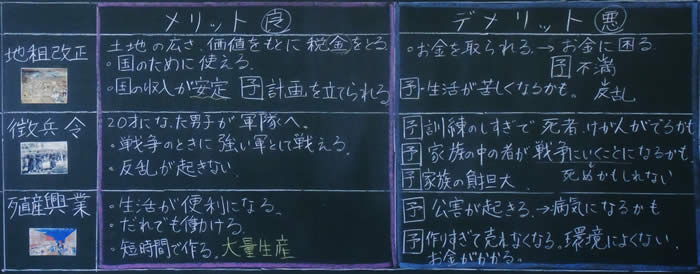 メリット 良
デメリット 悪
地租改正
土地の広さ、価値をもとに税金をとる
・国のために使える。
・国の収入が安定 予 計画を立てられる
・お金を取られる。→お金に困る
予 不満
予・生活が苦しくなるかも。 反乱
徴兵令
20才になった男子が軍隊へ。
・戦争のときに強い軍として戦える。
・反乱が起きない。
予 訓練のしすぎで死者、けが人がでるかも
予 家族の中の者が戦争にいくことになるかも
死ぬかもしれない
予 家族の負担大
殖産興業
・生活が便利になる。
・だれでも働ける。
・短時間で作る。大量生産
予 公害が起きる。→病気になるかも
予 作りすぎて売れなくなる。環境によくない。
お金がかかる。